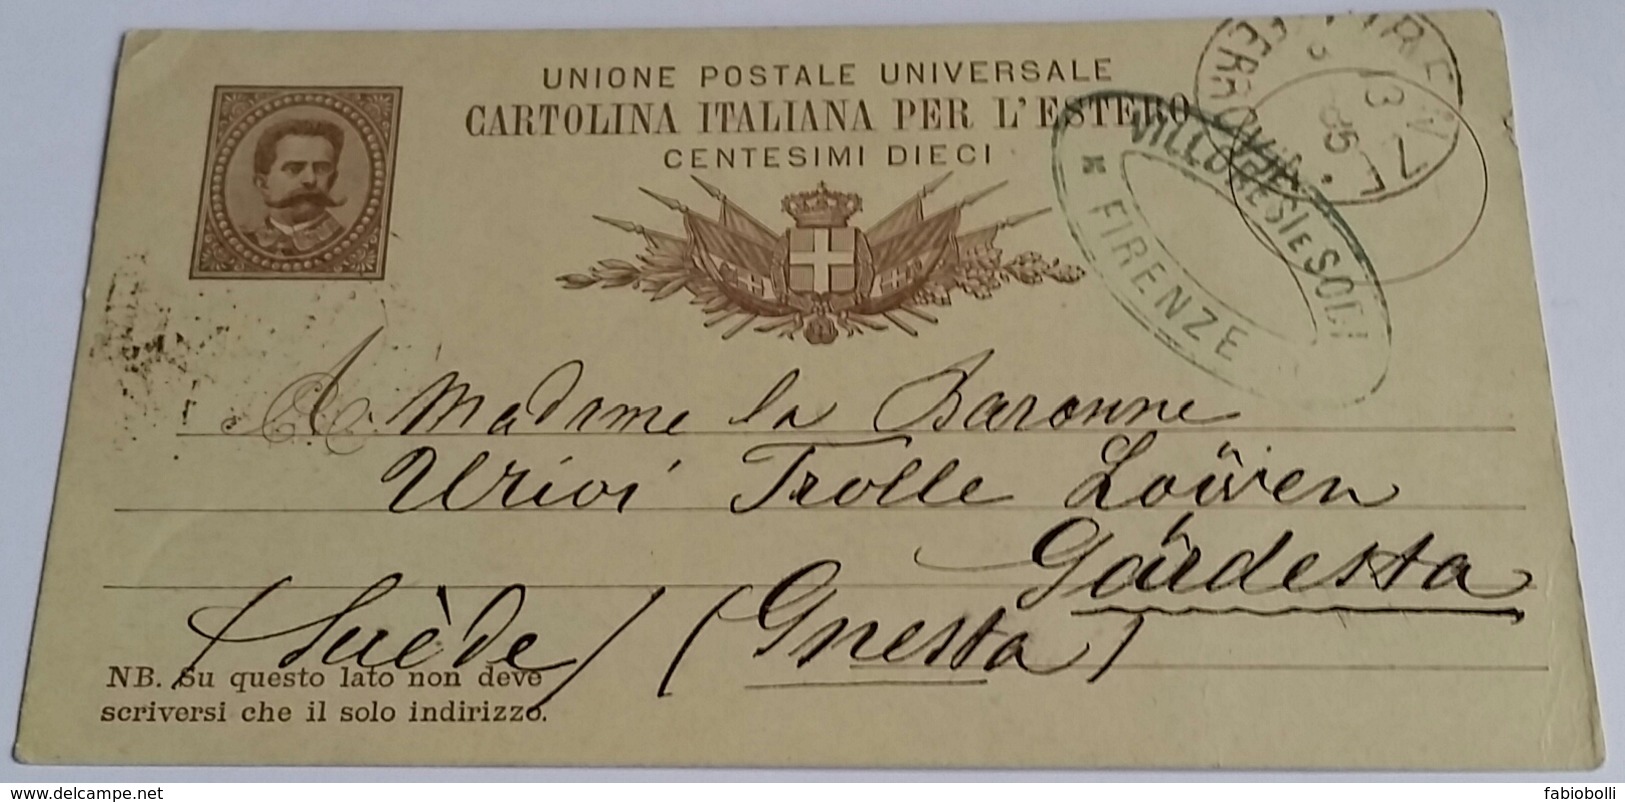 UNIONE POSTALE UNIVERSALE
CARTOLINA ITALIANA PER L'ESTERO
CENTESIMI DIECI
FERROVIA
13 V
7
85
FIRENZE
A Madame la Baronne
Trolle Löwen
Gårdesta
(Suède) (Gnesta)
NB. Su questo lato non deve
scriversi che il solo indirizzo.
www.delcampe.net
fabiobolli